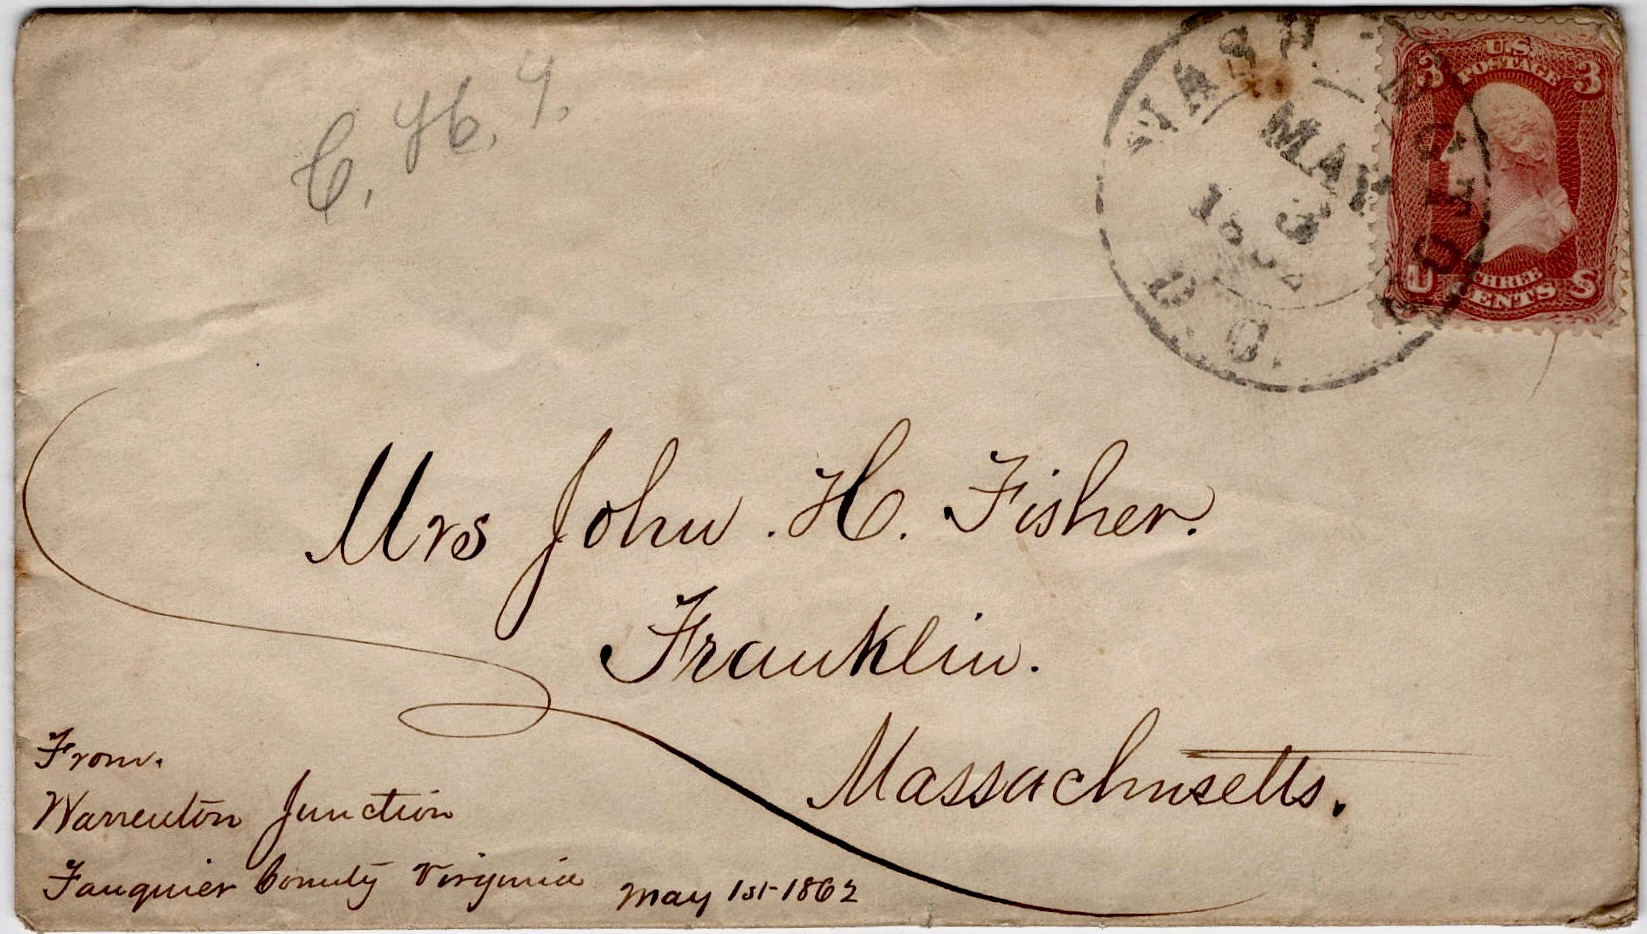 C. H. 9.
WASHINGTON
MAY
3
1862
D.C.
U.S.
POSTAGE
3 3
U THREE S
CENTS
Mrs John H. Fisher.
Franklin.
Massachusetts.
From.
Warrenton Junction
Fauquier County Virginia May 1st 1862